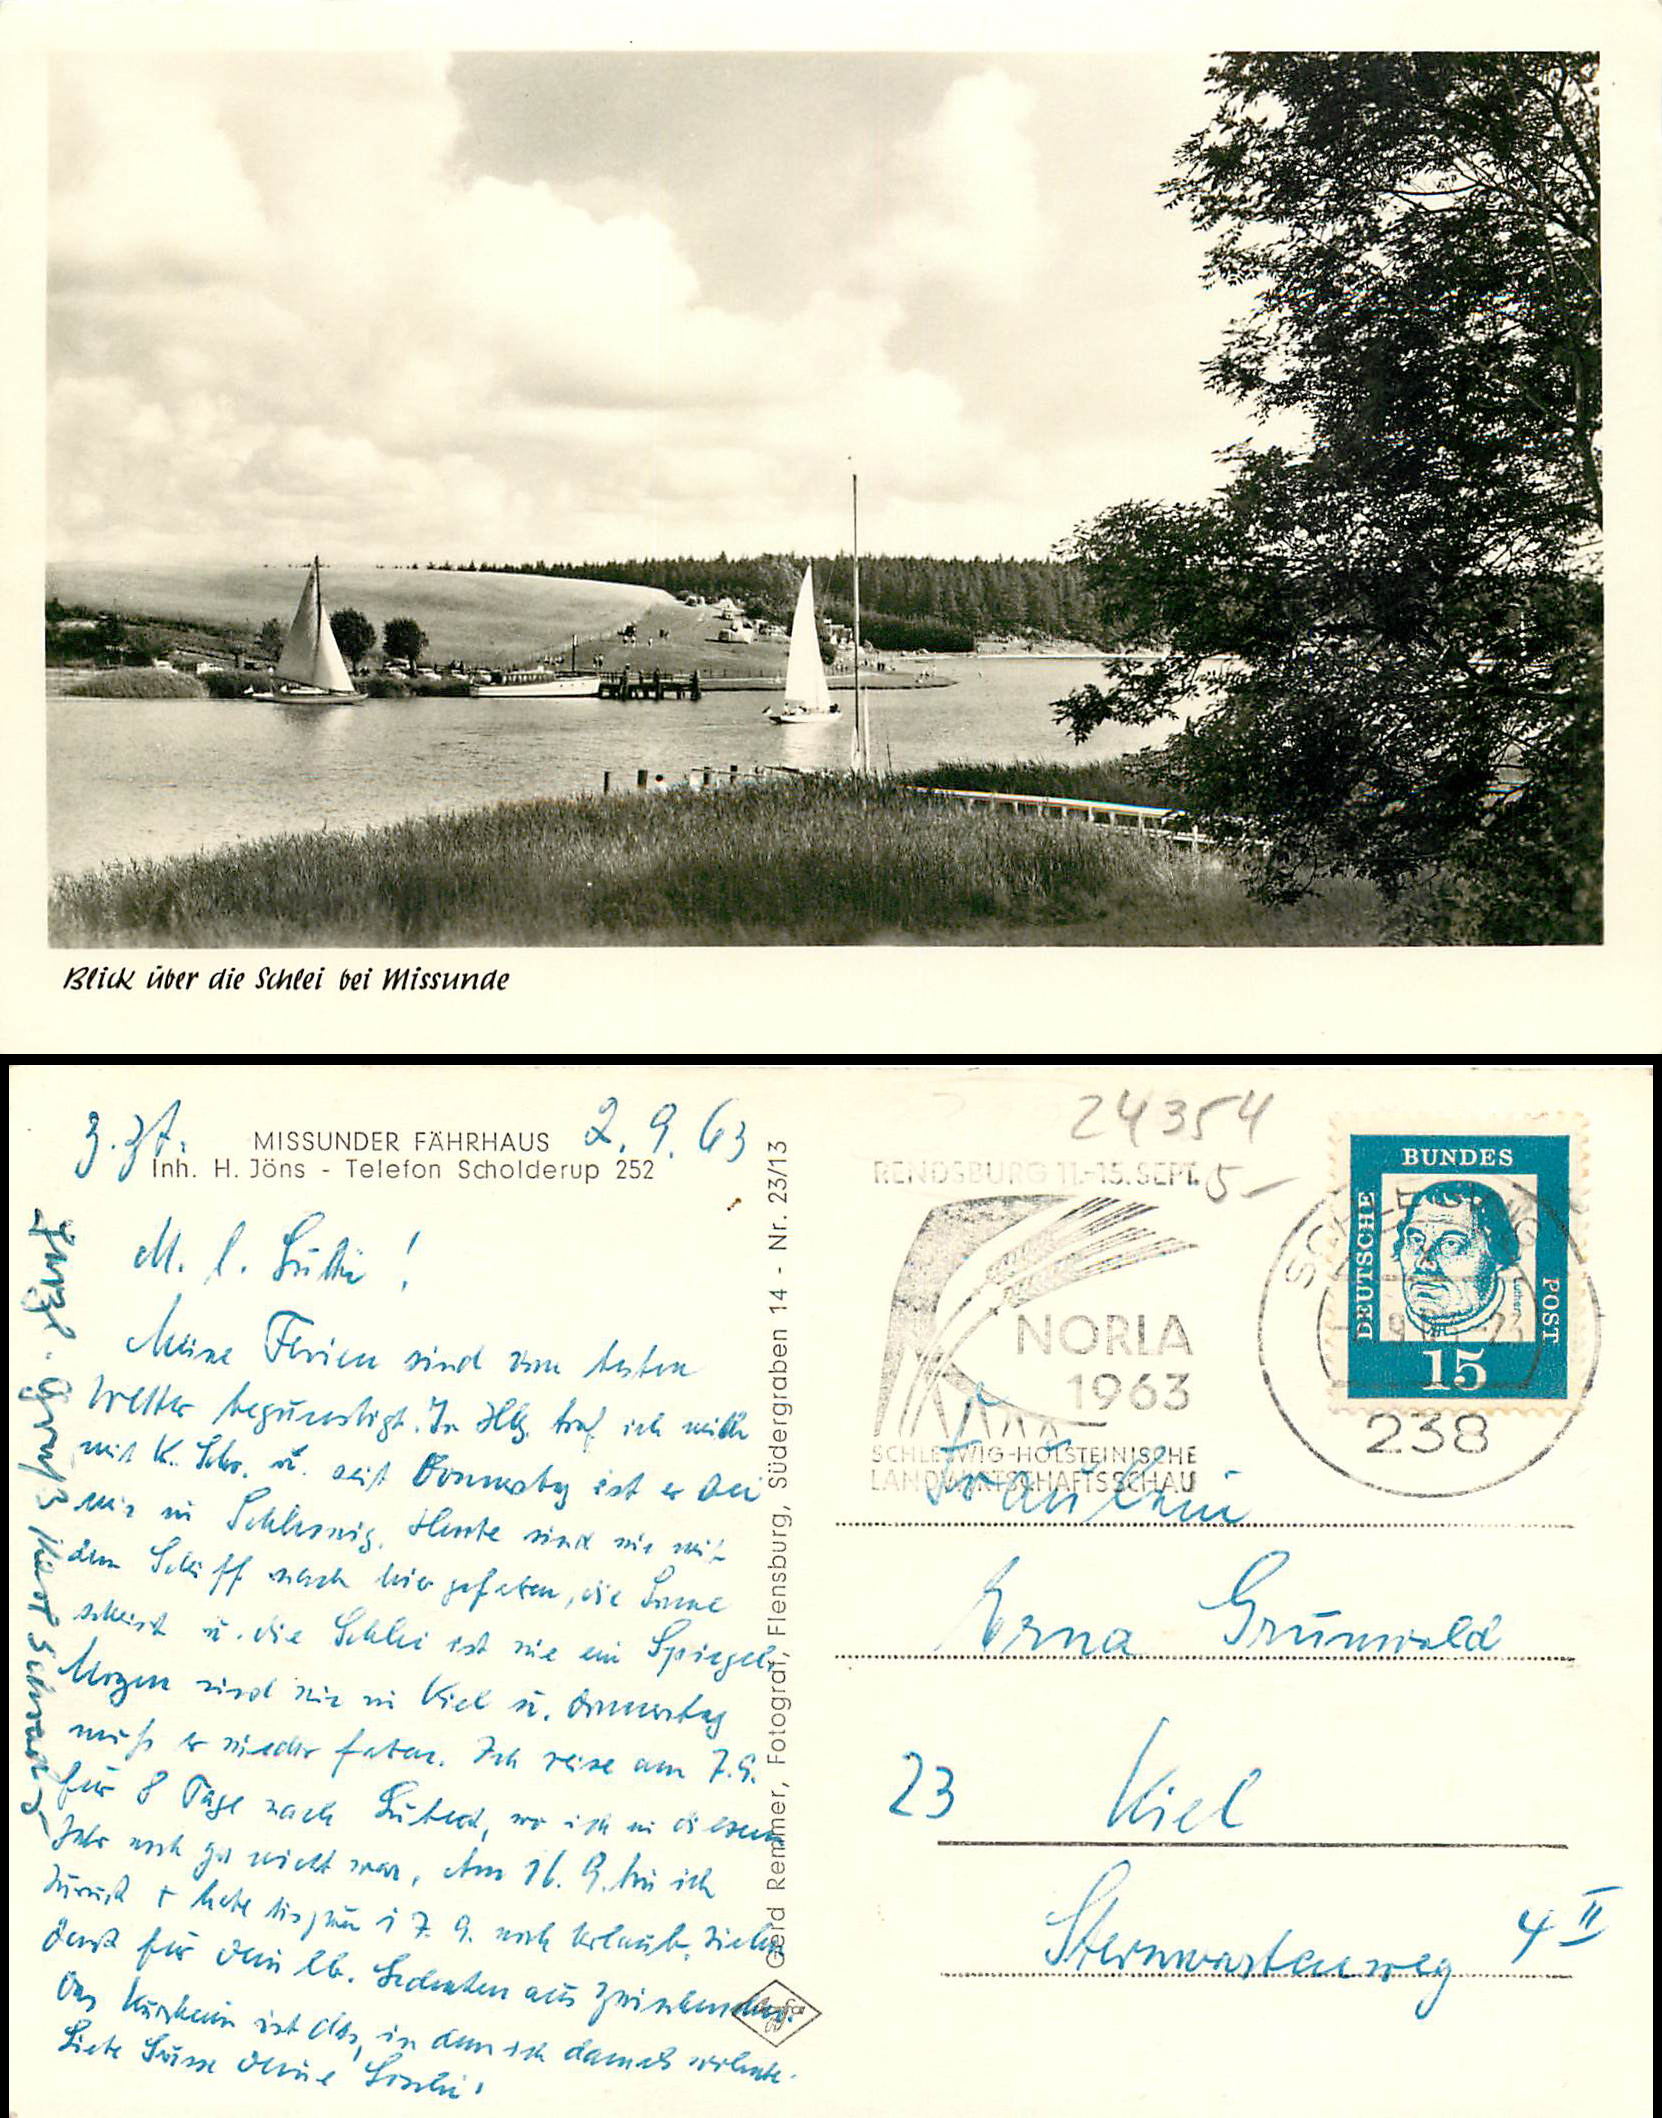 Blick über die Schlei bei Missunde
z. Zt.
MISSUNDER FÄHRHAUS
2.9.63
Inh. H. Jöns - Telefon Scholderup 252
M. l.
Meine Ferien sind vom besten
Wetter begünstigt. In Hbg. traf ich mich
mit K. Schr. u. seit Donnerstag ist er bei
mir in Schleswig. Heute sind wir mit
dem Schiff nach hier gefahren, die Sonne
scheint u. die Schlei ist wie ein Spiegel.
Morgen sind wir in Kiel u. Donnerstag
muß er wieder fahren. Ich reise am 7.9.
für 8 Tage nach Lübeck, wo ich in diesem
Jahr noch gar nicht war. Am 16.9. bin ich
zurück + habe bis zum 17.9. noch Urlaub. Vielen
Dank für Dein lb. Gedenken aus
Das Kurheim ist das, in dem ich damals wohnte.
Liebe Grüsse Deine
Herzl. Gruß Kurt
Gerd Remmer, Fotograf, Flensburg, Südergraben 14 - Nr. 23/13
Agfa
24354
5-
RENDSBURG 11.-15. SEPT.
NORLA
1963
SCHLESWIG-HOLSTEINISCHE
LANDWIRTSCHAFTSSCHAU
SCHLESWIG
238
DEUTSCHE
BUNDES
POST
Luther
15
Fräulein
Erna Grünwald
23 Kiel
Sternwartenweg 4 II